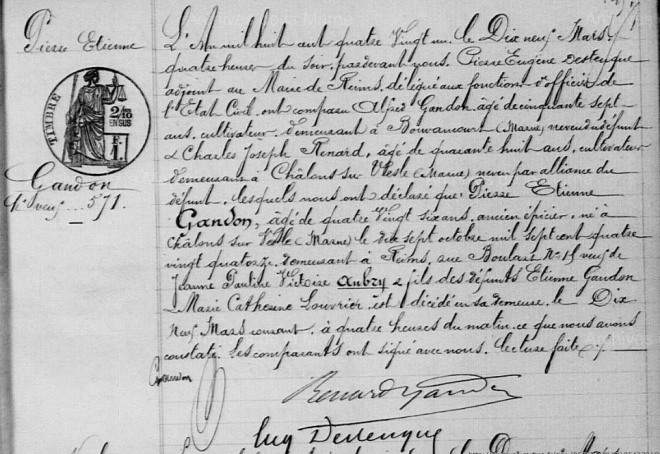 Pierre Etienne
TIMBRE
2/10
EN SUS
F.
1.
Gandon
571.
L'An mil huit cent quatre Vingt un, le Dix neuf Mars
quatre heures du soir, pardevant nous, Pierre Eugène Desteuque
adjoint au Maire de Reims, délégué aux fonctions d'officier de
l'Etat Civil, ont comparu Alfred Gandon, âgé de cinquante sept
ans, cultivateur, demeurant à Bouvancourt (Marne) neveu du défunt
& Charles Joseph Renard, âgé de quarante huit ans, cultivateur
demeurant à Châlons sur Vesle (Marne) neveu par alliance du
défunt, lesquels nous ont déclaré que Pierre Etienne
Gandon, âgé de quatre Vingt six ans, ancien épicier, né à
Châlons sur Vesle (Marne) le dix sept octobre mil sept cent quatre
vingt quatorze, demeurant à Reims, rue Boulard No 15 veuf de
Jeanne Pauline Victoire Aubry & fils des défunts Etienne Gandon
& Marie Catherine Louvrier est décédé en sa demeure, le Dix
Neuf Mars courant, à quatre heures du matin, ce que nous avons
constaté. Les comparants ont signé avec nous, lecture faite ./.
Renard Gandon
Eug Desteuque